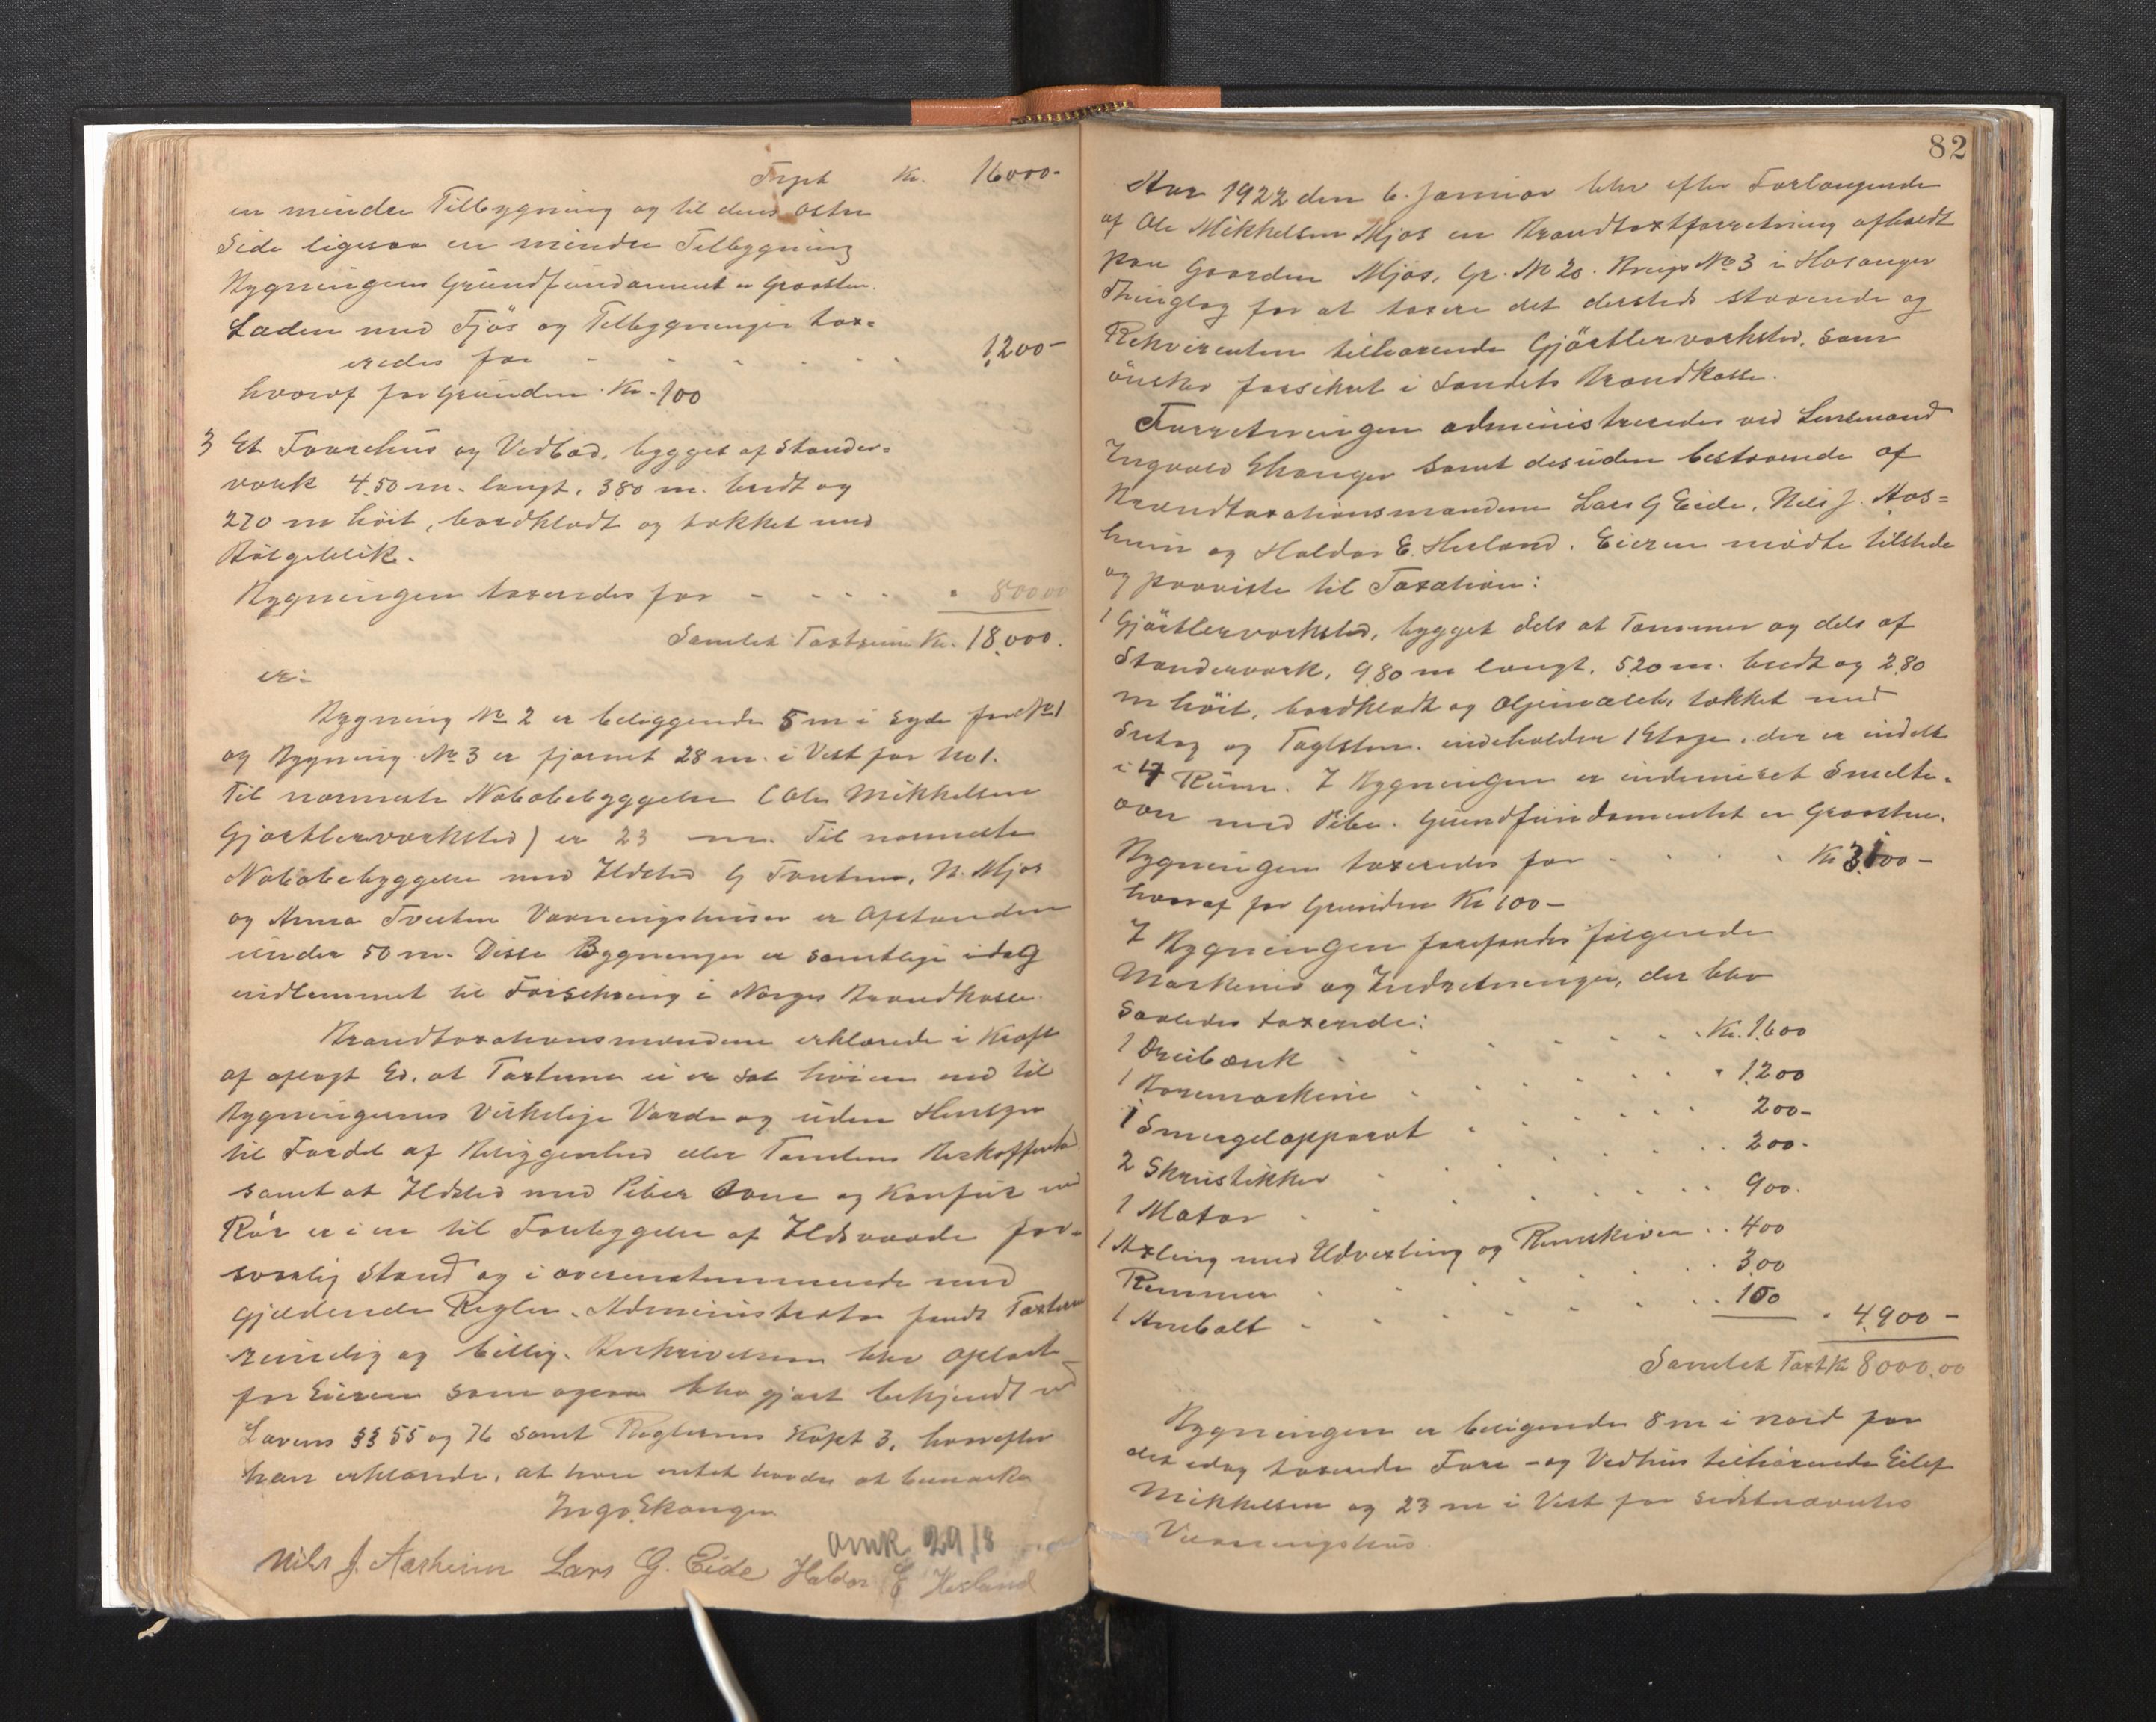 Trspt Kr. 16000-
en mindre Tilbygning og til dens østre
Side ligesaa en mindre Tilbygning
Bygningens Grundfundament er Graasten.
Laden med Fjøs og Tilbygninger tax=
eredes for - - - - - 1,200-
hvoraf for Grunden Kr. 100
3 Et Faarehus og Vedbod, bygget af Stander-
værk 4,50 m. langt, 3,80 m. bredt og
2,70 m høit, bordklædt og tækket med
Bølgeblik.
Bygningen taxeredes for - - - - " 800,00
Samlet Taxtsum Kr. 18,000.
Bygning No 2 er beliggende 5 m i Syd for No 1
og Bygning No 3 er fjernet 28 m. i Vest for No 1.
Til nærmeste Nabobebyggelse (Ole Mikkelsen
Gjørtlerværksted) er 23 m. Til nærmeste
Nabobebyggelse med Ildsted G Tveiten, N. Mjøs
og Anna Tveiten Vaaningshuser er Afstanden
under 50 m. Disse Bygninger er samtlige idag
indlemmet til Forsikring i Norges Brandkasse.
Brandtaxationsmændene erklærede i Kraft
af aflagt Ed, at Taxterne ei er sat høiere end til
Bygningernes Virkelige Værdi og uden Hensyn
til Fordel af Beliggenhed eller Tomtens Beskaffenhed
samt at Ildsted med Piber Ovne og Komfur med
Rør er i en til Forebyggelse af Ildsvaade for-
svarlig Stand og i overenstemmende med
gjældende Regler. Administrator fandt Taxterne
rimelig og billig. Beskrivelsen blev oplæst
for Eieren som ogsaa blev gjort bekjendt med
Lovens §§ 55 og 76 samt Reglernes Kapt 3, hvorefter
han erklærede, at han intet havde at bemærke
Ingv. Ekanger
omk 29/8
Nils J. Aasheim Lars G. Eide Haldor E Hesland
82
Aar 1922 den 6. Januar blev efter Forlangende
af Ole Mikkelsen Mjøs en Brandtaxtforretning afholdt
paa Gaarden Mjøs, Gr. No 20. Brugs No 3 i Hosanger
Thinglag for at taxere det dersteds staaende og
Rekvirenten tilhørende Gjørtlerværksted, som
ønskes forsikret i Landets Brandkasse.
Forretningen administreredes ved Lensmand
Ingvald Ekanger samt desuden bestaaende af
Brandtaxationsmændene Lars G Eide, Nils J. Aas=
heim og Haldor E. Hesland. Eieren mødte tilstede
og paaviste til Taxation:
1 Gjørtlerværksted, bygget dels at Tømmer og dels af
Standerværk, 9,80 m langt, 5,20 m. bredt og 2,80
m høit, bordklædt og oljemalet, tækket med
Sutag og Taglsten. indeholder 1 Etage, der er indelt
i 4 Rum. I Bygningen er indmuret Smelte-
ovn med Pibe. Grundfundamentet er Graasten.
Bygningen taxeredes for - - - - Kr 3100-
hvoraf for Grunden Kr 100-
I Bygningen forefandtes følgende
Maskiner og Indretninger, der blev
saaledes taxerede:
1 Dreibænk - - - - - Kr. 1,600
1 Boremaskine - - - - - " 1,200
1 Smergelapparat - - - - 200-
2 Skrustikker - - - - 200-
1 Motor - - - - - 900.
1 Axling med Udvexling og Remskiver - - 400
Remmer - - - - - 300
1 Ambolt - - - - - 100 " 4,900-
Samlet Taxt Kr 8000,00
Bygningen er beligende 8 m i Nord for
det idag taxerede Faare- og Vedhus tilhørende Eilef
Mikkelsen og 23 m i Vest for sidstnævntes
Vaaningshus.